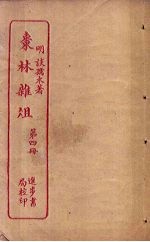 明談孺木著
棗林雜俎
第四冊
進步書
局校印